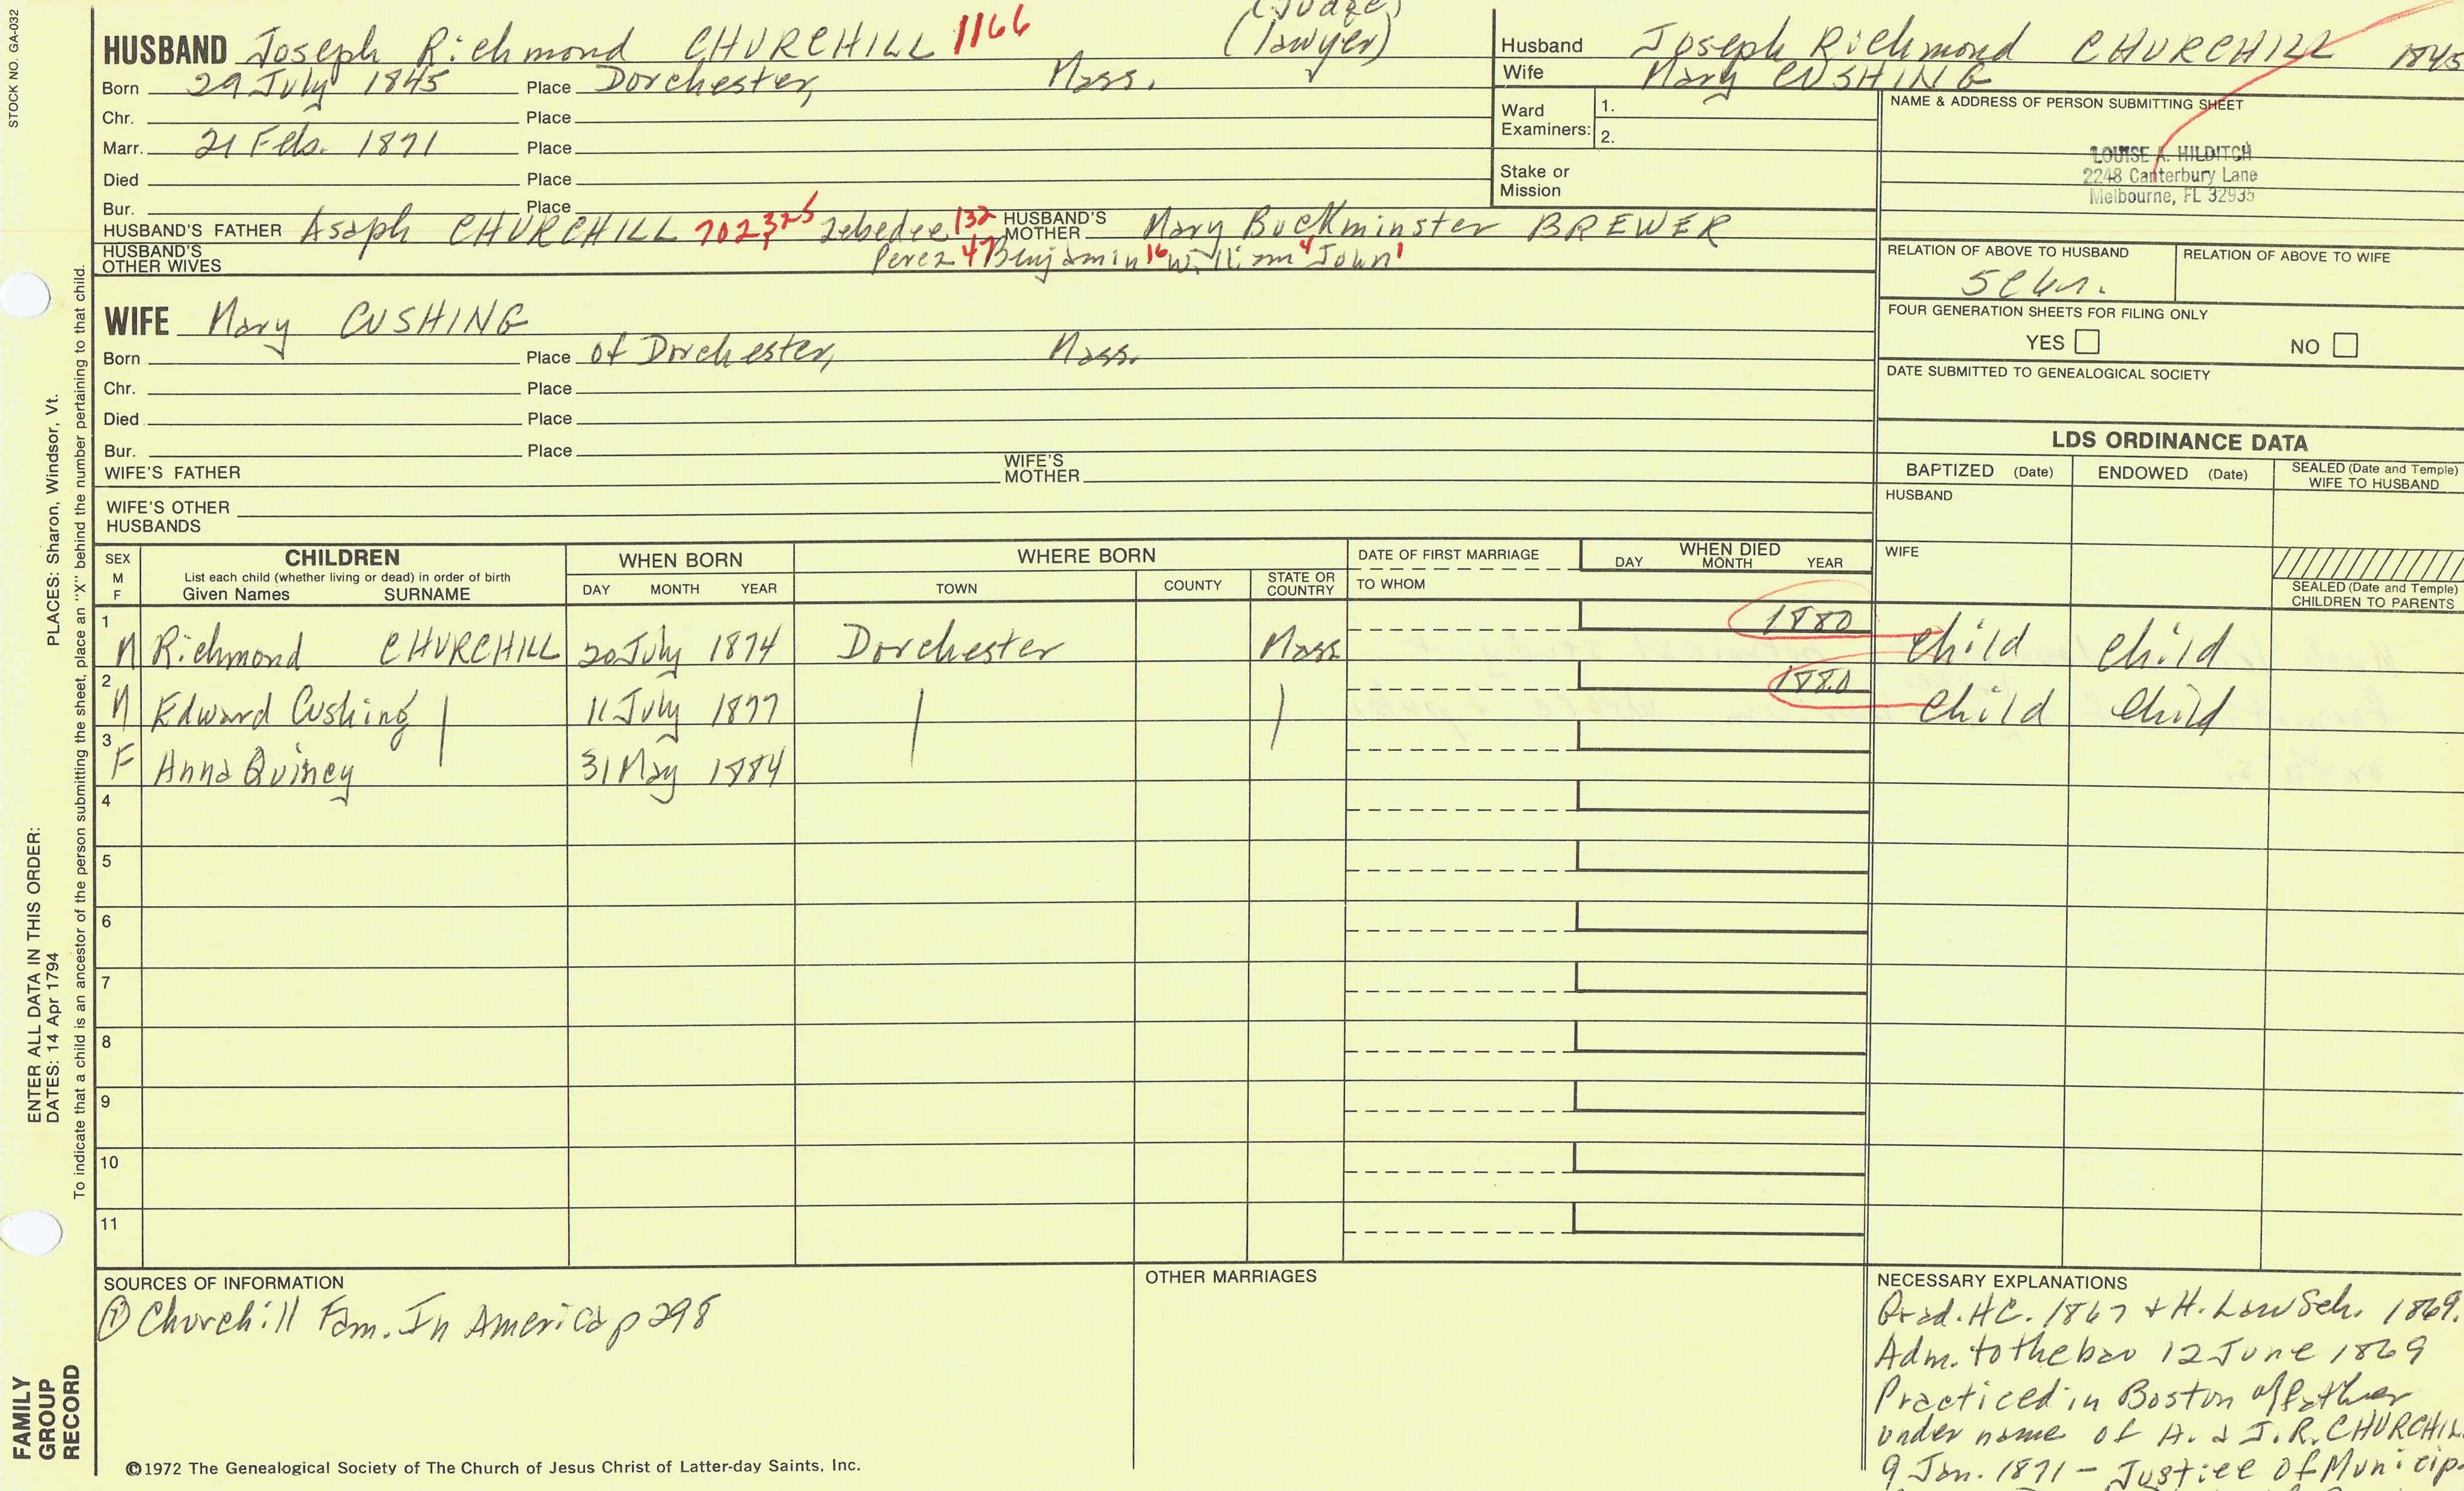 STOCK NO. GA-032
(Judge)
HUSBAND Joseph Richmond CHURCHILL 1166 (lawyer)
Born 29 July 1845 Place Dorchester, Mass.
Chr. Place
Marr. 21 Feb. 1871 Place
Died Place
Bur. Place
HUSBAND'S FATHER Asaph CHURCHILL 702, 325 Zebedee 132 HUSBAND'S MOTHER Mary Buckminster BREWER
HUSBAND'S OTHER WIVES Perez 47 Benjamin 16 William 4 John 1
WIFE Mary CUSHING
Born Place of Dorchester, Mass.
Chr. Place
Died Place
Bur. Place
WIFE'S FATHER WIFE'S MOTHER
WIFE'S OTHER HUSBANDS
Husband Joseph Richmond CHURCHILL 1845
Wife Mary CUSHING
Ward Examiners: 1.
2.
Stake or Mission
NAME & ADDRESS OF PERSON SUBMITTING SHEET
LOUISE A. HILDITCH
2248 Canterbury Lane
Melbourne, FL 32935
RELATION OF ABOVE TO HUSBAND RELATION OF ABOVE TO WIFE
FOUR GENERATION SHEETS FOR FILING ONLY
YES NO
DATE SUBMITTED TO GENEALOGICAL SOCIETY
LDS ORDINANCE DATA
BAPTIZED (Date) ENDOWED (Date) SEALED (Date and Temple) WIFE TO HUSBAND
HUSBAND
WIFE
SEALED (Date and Temple) CHILDREN TO PARENTS
SEX M F CHILDREN WHEN BORN WHERE BORN DATE OF FIRST MARRIAGE WHEN DIED
List each child (whether living or dead) in order of birth
Given Names SURNAME DAY MONTH YEAR TOWN COUNTY STATE OR COUNTRY TO WHOM DAY MONTH YEAR
1 M Richmond CHURCHILL 20 July 1874 Dorchester Mass 1880 child child
2 M Edward Cushing | 11 July 1877 | | 1880 child child
3 F Anna Quincy 31 May 1884
4
5
6
7
8
9
10
11
SOURCES OF INFORMATION
① Churchill Fam. In America p 298
OTHER MARRIAGES
NECESSARY EXPLANATIONS
Grad. HC. 1867 + H. Law Sch. 1869.
Adm. to the bar 12 June 1869
Practiced in Boston father
under name of A. & J.R. CHURCHIL
9 Jan. 1871 - Justice of Municip
©1972 The Genealogical Society of The Church of Jesus Christ of Latter-day Saints, Inc.
PLACES: Sharon, Windsor, Vt.
ENTER ALL DATA IN THIS ORDER:
DATES: 14 Apr 1794
To indicate that a child is an ancestor of the person submitting the sheet, place an "X" behind the number pertaining to that child.
FAMILY
GROUP
RECORD